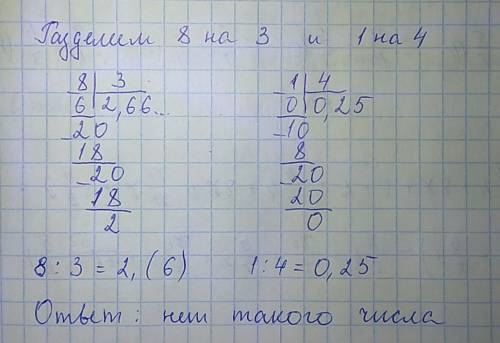 Разделим 8 на 3 и 1 на 4
8 | 3
6 | 2,66...
-20
18
-20
18
2
1 | 4
0 | 0,25
-10
8
-20
20
0
8 : 3 = 2,(6) 1 : 4 = 0,25
Ответ: нет такого числа